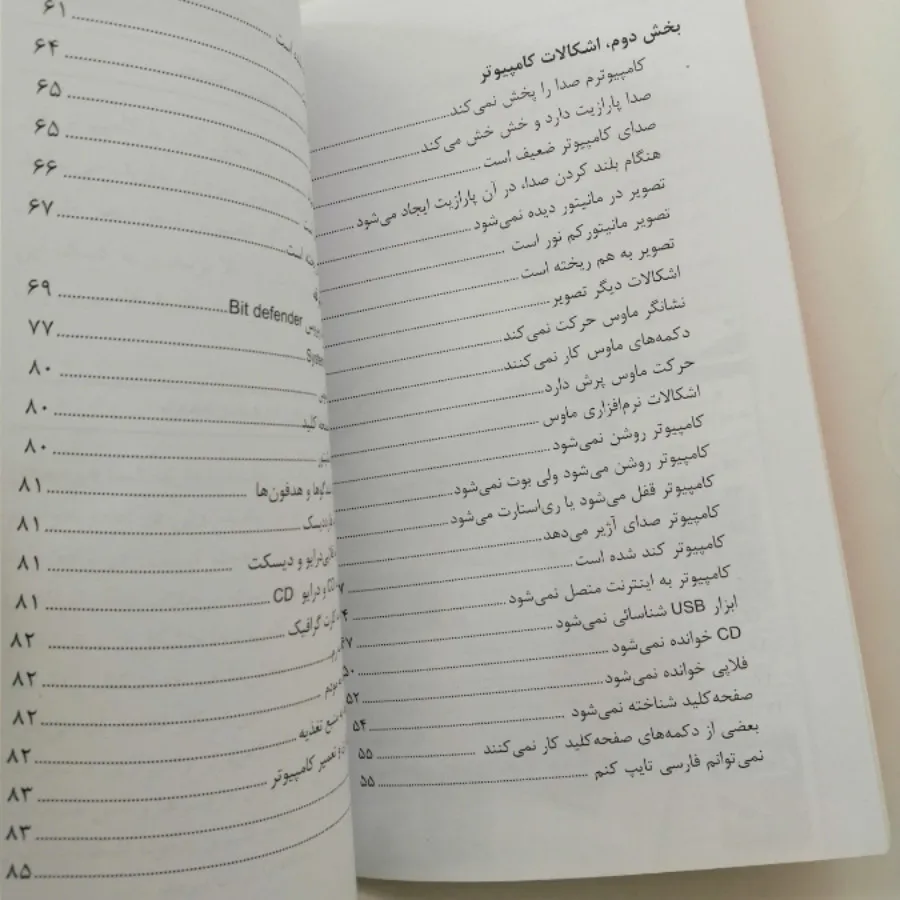 بخش دوم، اشکالات کامپیوتر
کامپیوترم صدا را پخش نمی‌کند
صدا پارازیت دارد و خش خش می‌کند
صدای کامپیوتر ضعیف است
هنگام بلند کردن صدا، در آن پارازیت ایجاد می‌شود
تصویر در مانیتور دیده نمی‌شود
تصویر مانیتور کم نور است
تصویر به هم ریخته است
اشکالات دیگر تصویر
نشانگر ماوس حرکت نمی‌کند
دکمه‌های ماوس کار نمی‌کنند
حرکت ماوس پرش دارد
اشکالات نرم‌افزاری ماوس
کامپیوتر روشن نمی‌شود
کامپیوتر روشن می‌شود ولی بوت نمی‌شود
کامپیوتر قفل می‌شود یا ری‌استارت می‌شود
کامپیوتر صدای آژیر می‌دهد
کامپیوتر کند شده است
کامپیوتر به اینترنت متصل نمی‌شود
ابزار USB شناسائی نمی‌شود
CD خوانده نمی‌شود
فلاپی خوانده نمی‌شود
صفحه‌کلید شناخته نمی‌شود ۵۴
بعضی از دکمه‌های صفحه‌کلید کار نمی‌کنند ۵۵
نمی‌توانم فارسی تایپ کنم ۵۵
است ۶۱
۶۴
۶۵
۶۵
۶۶
است ۶۷
Bit defender ۶۹
۷۷
۸۰
۸۰
۸۰
و هدفون‌ها ۸۱
۸۱
و دیسکت ۸۱
و درایو CD ۸۱
گرافیک ۸۲
۸۲
۸۲
منبع تغذیه ۸۲
و تعمیر کامپیوتر ۸۳
۸۳
۸۵